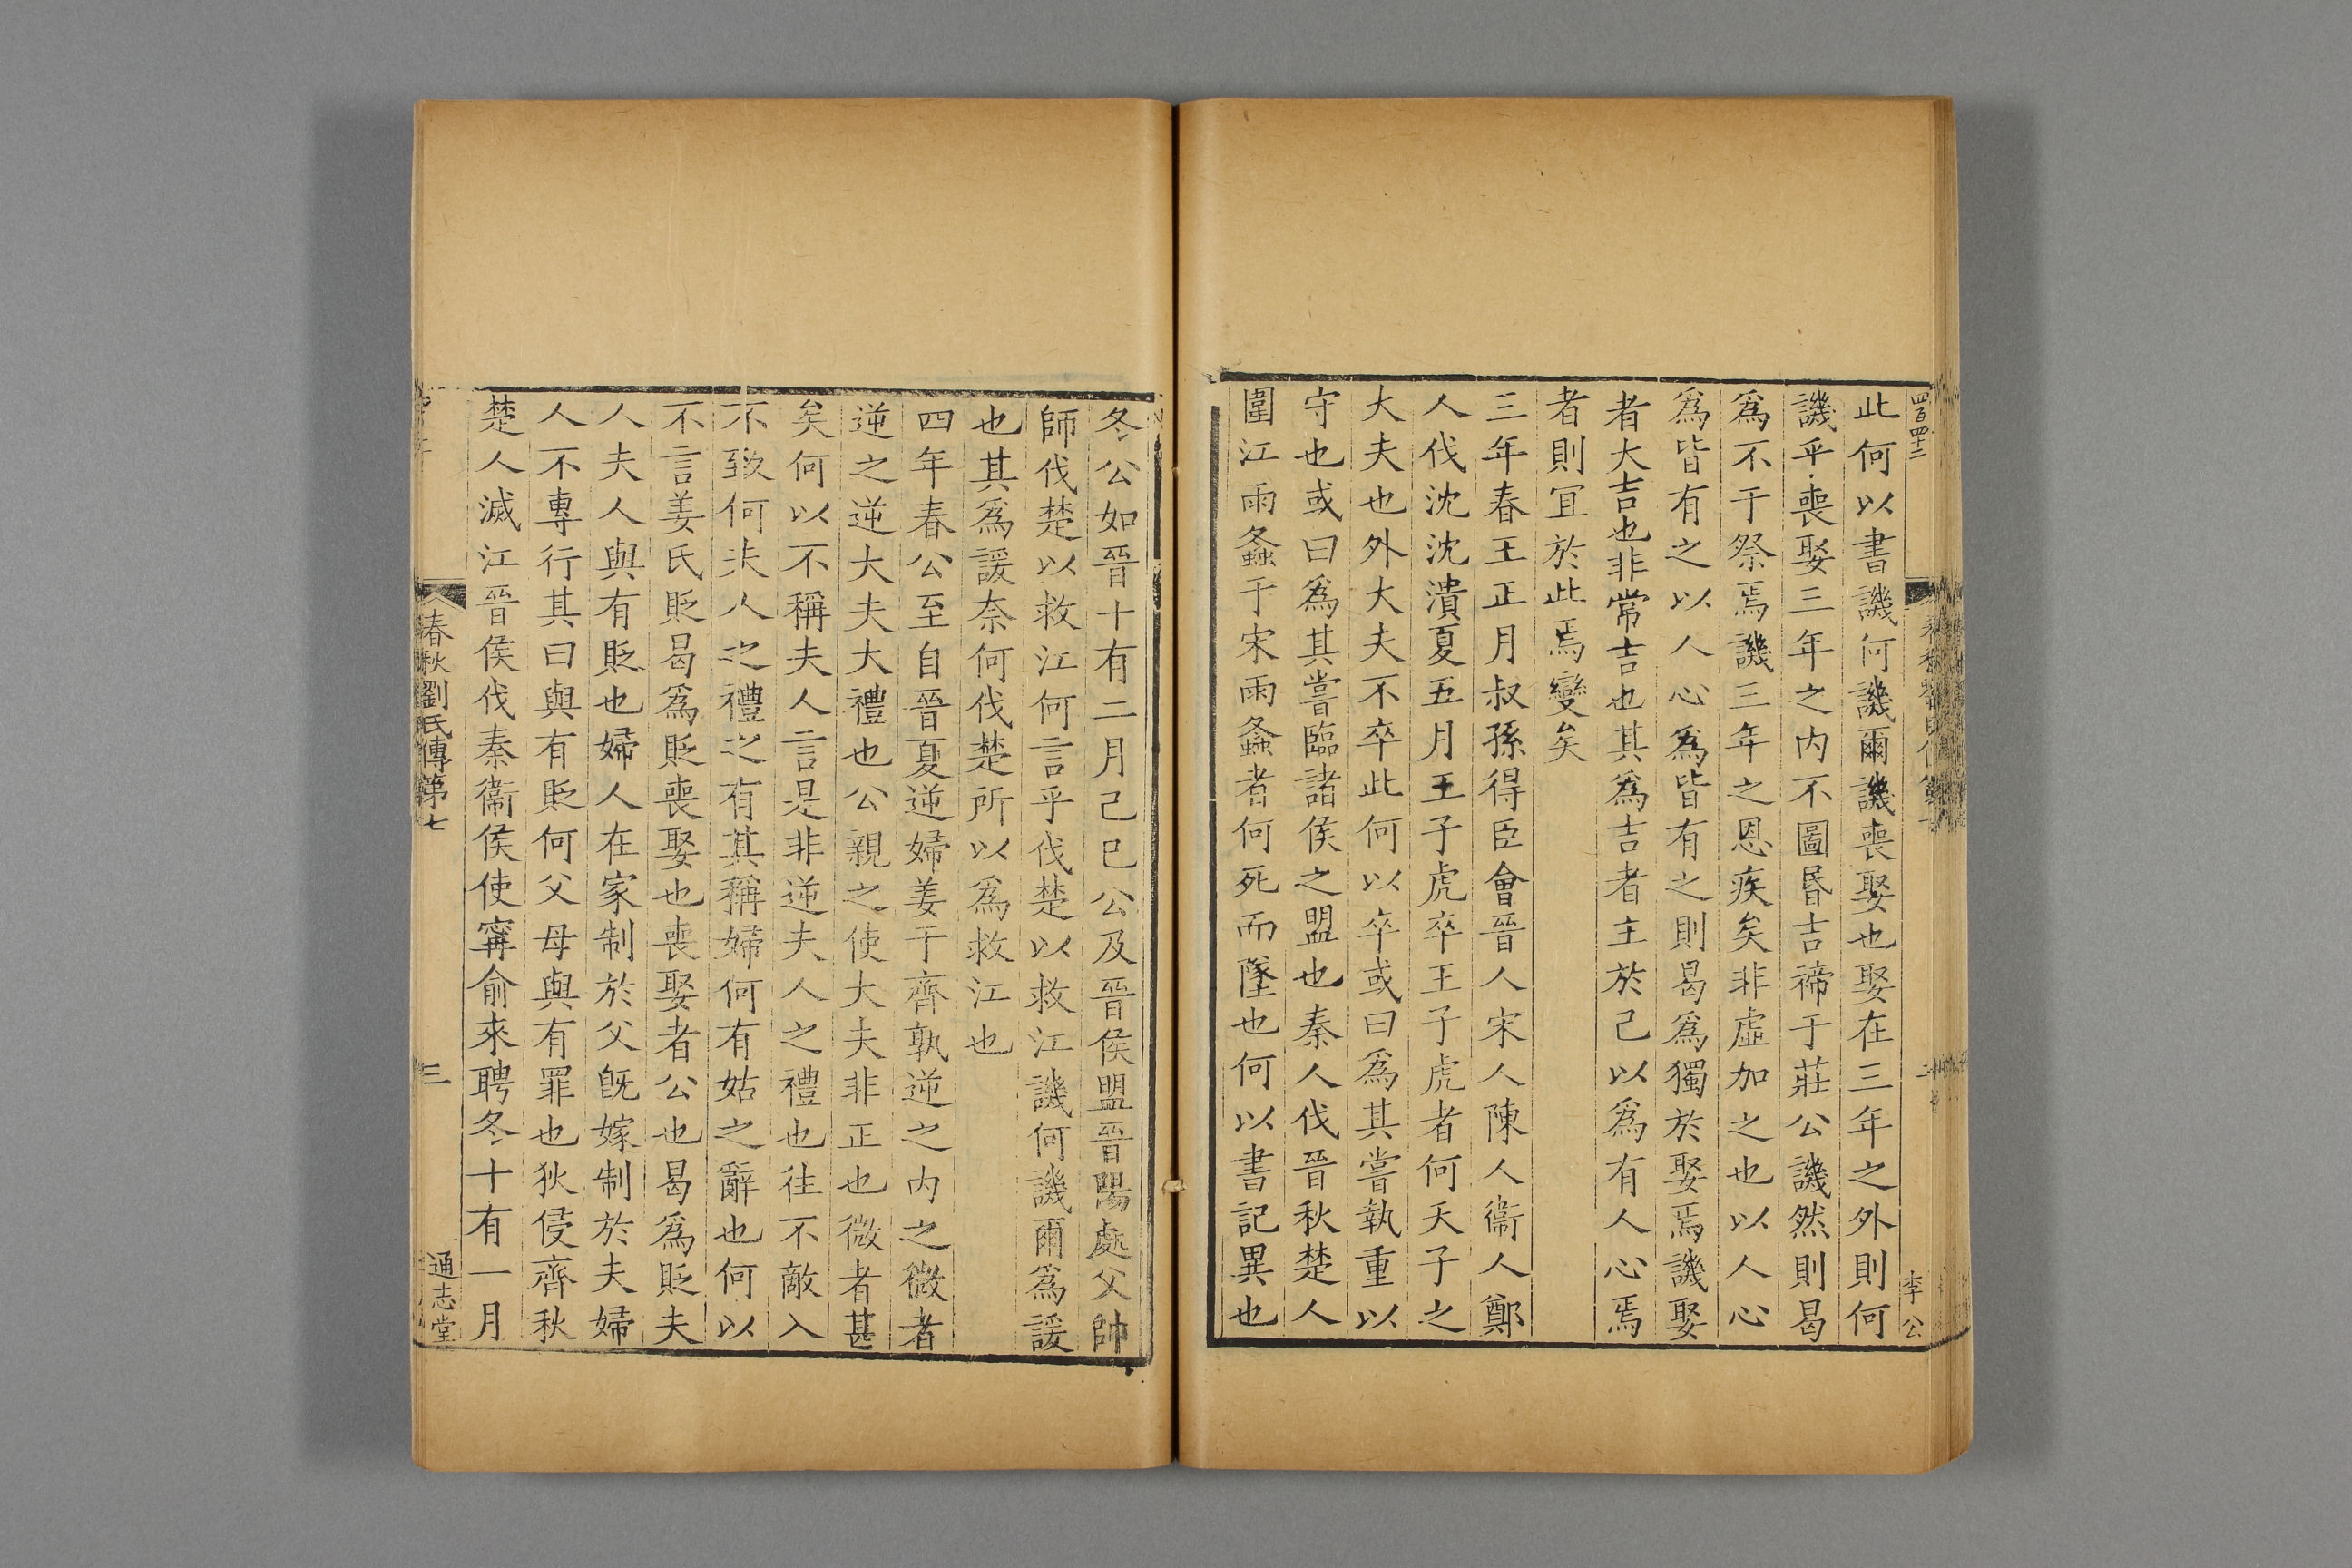 四百四十二
李公
此何以書譏何譏爾譏喪娶也娶在三年之外則何
譏乎喪娶三年之內不圖昏吉禘于莊公譏然則曷
爲不于祭焉譏三年之恩疾矣非虛加之也以人心
爲皆有之以人心爲皆有之則曷爲獨於娶焉譏娶
者大吉也非常吉也其爲吉者主於己以爲有人心焉
者則宜於此焉變矣
三年春王正月叔孫得臣會晉人宋人陳人衞人鄭
人伐沈沈潰夏五月王子虎卒王子虎者何天子之
大夫也外大夫不卒此何以卒或曰爲其嘗執重以
守也或曰爲其嘗臨諸侯之盟也秦人伐晉秋楚人
圍江雨螽于宋雨螽者何死而墜也何以書記異也
冬公如晉十有二月己巳公及晉侯盟晉陽處父帥
師伐楚以救江何言乎伐楚以救江譏何譏爾爲諼
也其爲諼奈何伐楚所以爲救江也
四年春公至自晉夏逆婦姜于齊孰逆之內之微者
逆之逆大夫大禮也公親之使大夫非正也微者甚
矣何以不稱夫人言是非逆夫人之禮也往不敵入
不致何夫人之禮之有其稱婦何有姑之辭也何以
不言姜氏貶曷爲貶喪娶也喪娶者公也曷爲貶夫
人夫人與有貶也婦人在家制於父旣嫁制於夫婦
人不專行其曰與有貶何父母與有罪也狄侵齊秋
楚人滅江晉侯伐秦衞侯使甯俞來聘冬十有一月
春秋劉氏傳第七
三
通志堂